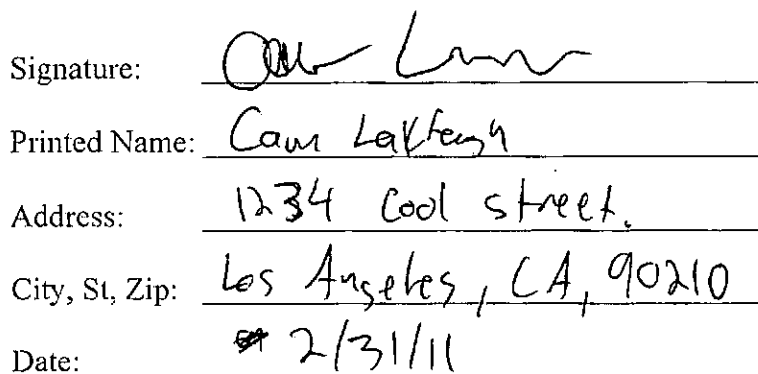 Signature:
Printed Name: Cam
Address: 1234 Cool street.
City, St, Zip: Los Angeles, CA, 90210
Date: 2/31/11